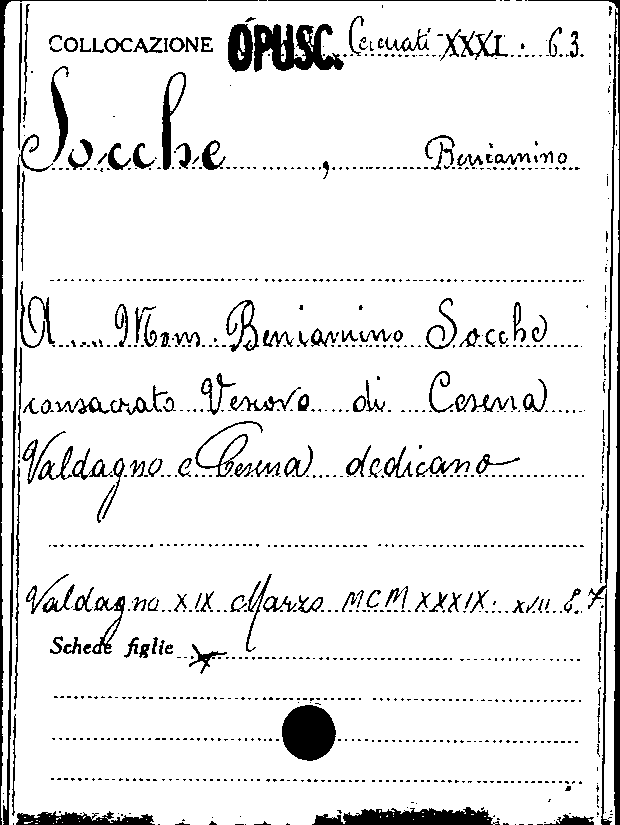 COLLOCAZIONE OPUSC. Cesenati XXXI. 63
Socche, Beniamino
A .... Mons. Beniamino Socche
consacrato Vescovo di Cesena
Valdagno e Cesena dedicano
Valdagno XIX Marzo MCMXXXIX. XVII
Schede figlie